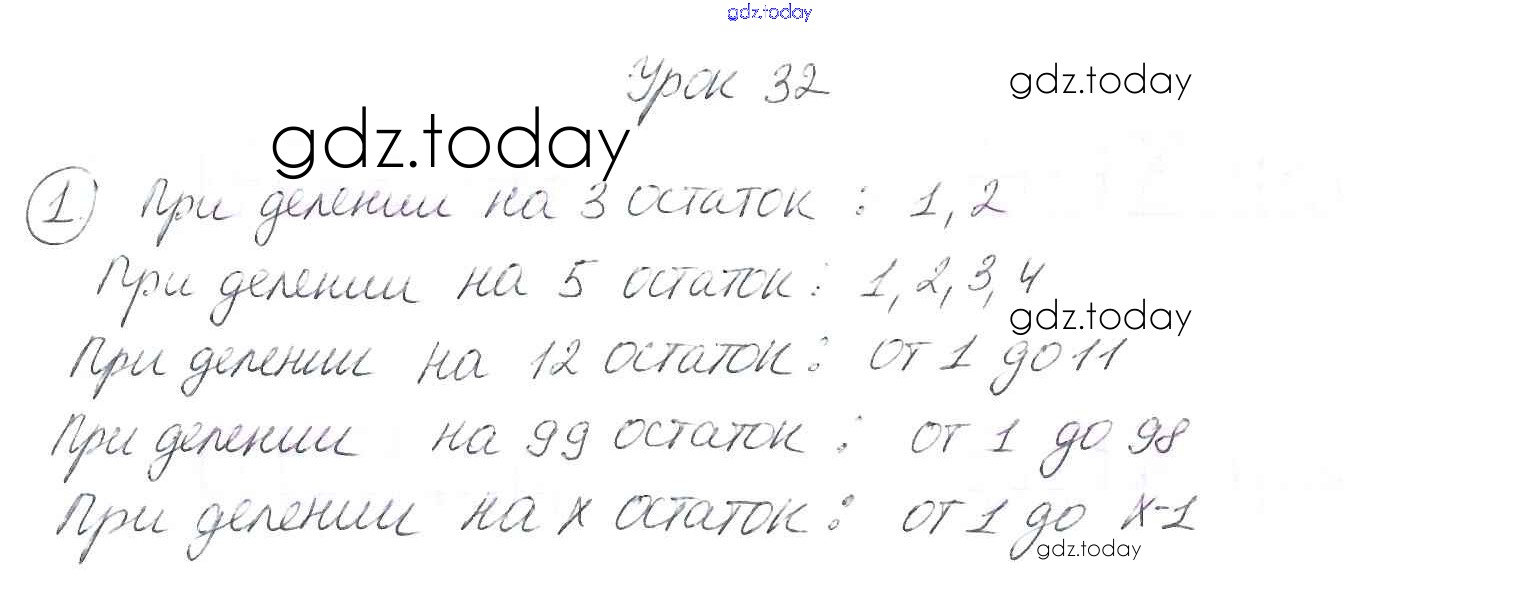 gdz.today
Урок 32
gdz.today
gdz.today
1) При делении на 3 остаток: 1, 2
При делении на 5 остаток: 1, 2, 3, 4
gdz.today
При делении на 12 остаток: от 1 до 11
При делении на 99 остаток: от 1 до 98
При делении на x остаток: от 1 до x-1
gdz.today